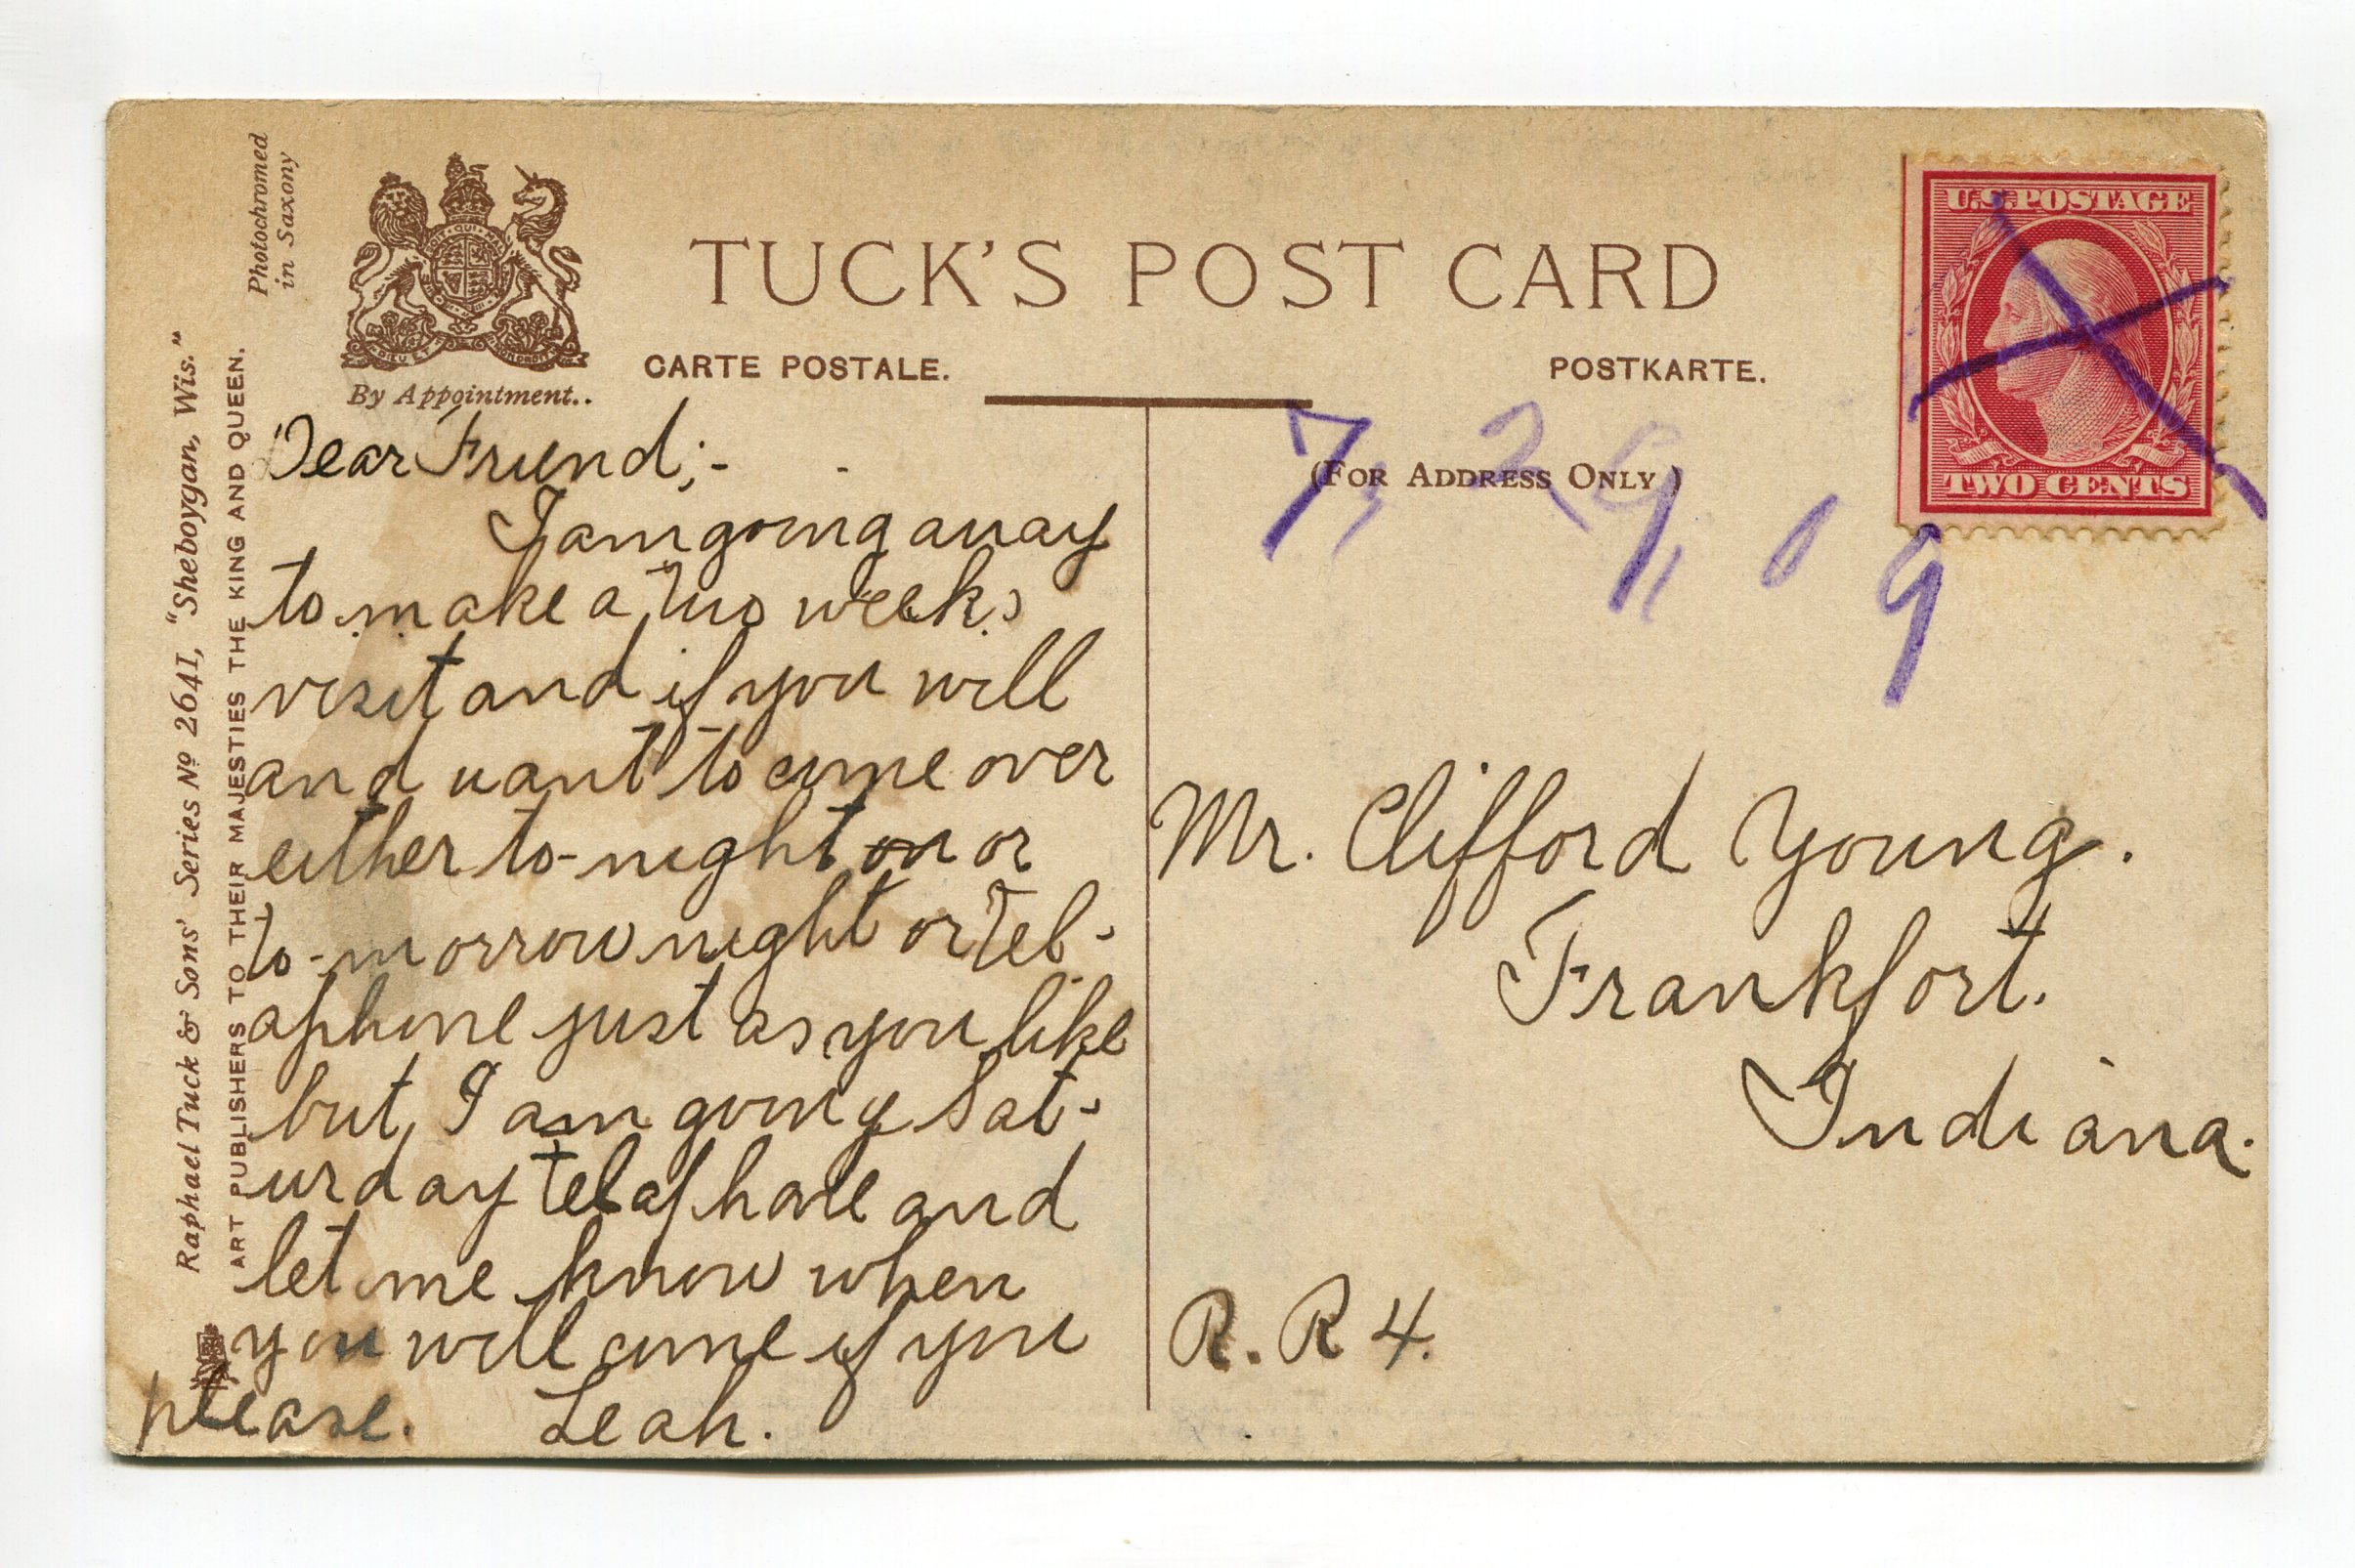 Photochromed
in Saxony
Raphael Tuck & Sons' Series Nº 2641, "Sheboygan, Wis."
ART PUBLISHERS TO THEIR MAJESTIES THE KING AND QUEEN.
By Appointment..
TUCK'S POST CARD
CARTE POSTALE.
POSTKARTE.
(FOR ADDRESS ONLY)
U.S. POSTAGE
TWO CENTS
7, 29, 09
Dear Friend;-
I am going away
to make a two weeks
visit and if you will
and want to come over
either to-night on or
to-morrow night or Tel-
aphone just as you like
but, I am going Sat-
urday telaphone and
let me know when
you will come if you
please. Leah.
Mr. Clifford Young.
Frankfort.
Indiana.
R. R 4.